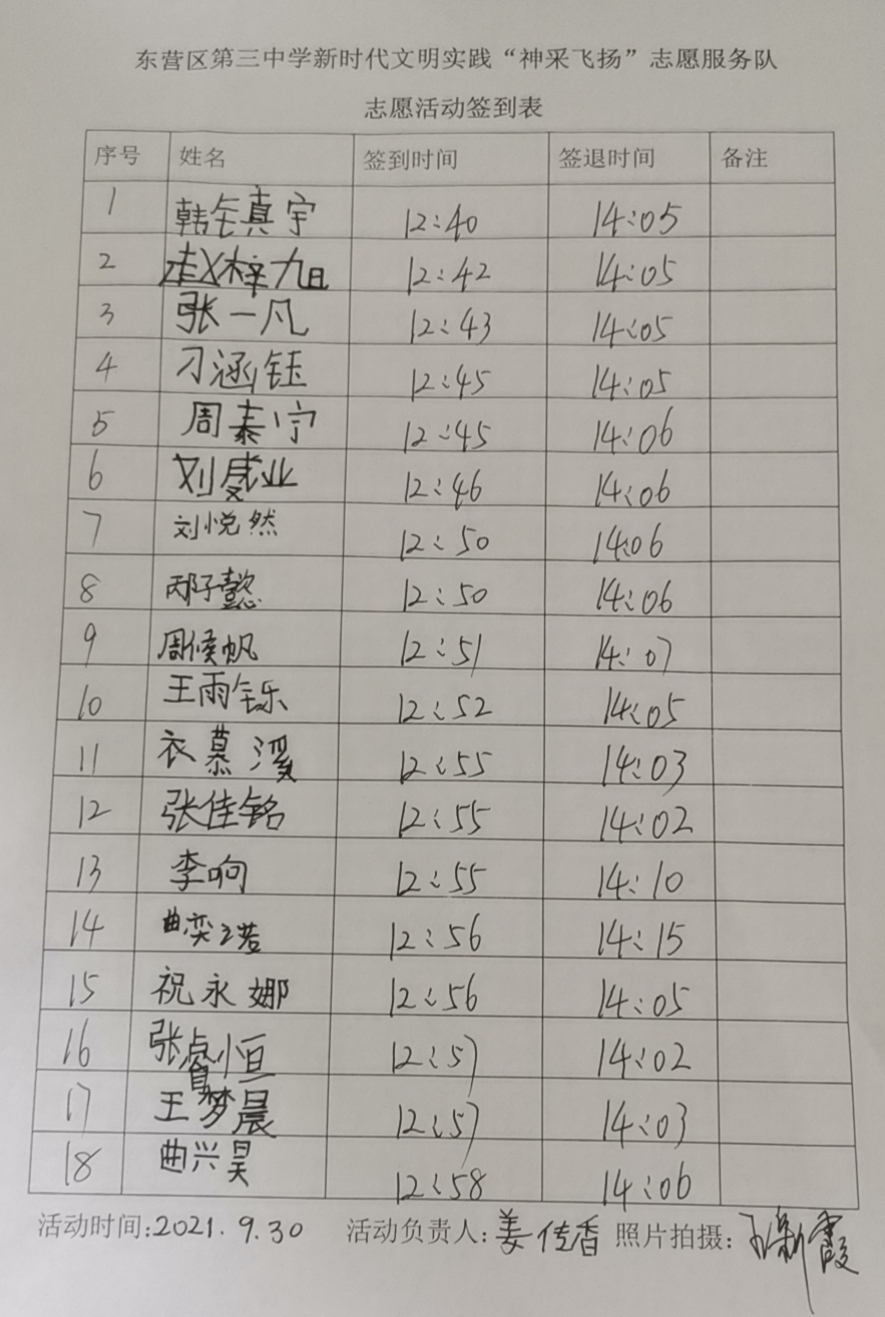 东营区第三中学新时代文明实践“神采飞扬”志愿服务队
志愿活动签到表
序号 姓名 签到时间 签退时间 备注
1 韩金真宇 12:40 14:05
2 赵梓旭 12:42 14:05
3 张一凡 12:43 14:05
4 刁涵钰 12:45 14:05
5 周泰宁 12:45 14:06
6 刘晟业 12:46 14:06
7 刘悦然 12:50 14:06
8 邴子懿 12:50 14:06
9 周候帆 12:51 14:07
10 王雨铄 12:52 14:05
11 衣慕溪 12:55 14:03
12 张佳铭 12:55 14:02
13 李响 12:55 14:10
14 曲奕诺 12:56 14:15
15 祝永娜 12:56 14:05
16 张睿恒 12:57 14:02
17 王梦晨 12:57 14:03
18 曲兴昊 12:58 14:06
活动时间:2021.9.30 活动负责人:姜传香 照片拍摄: 新霞